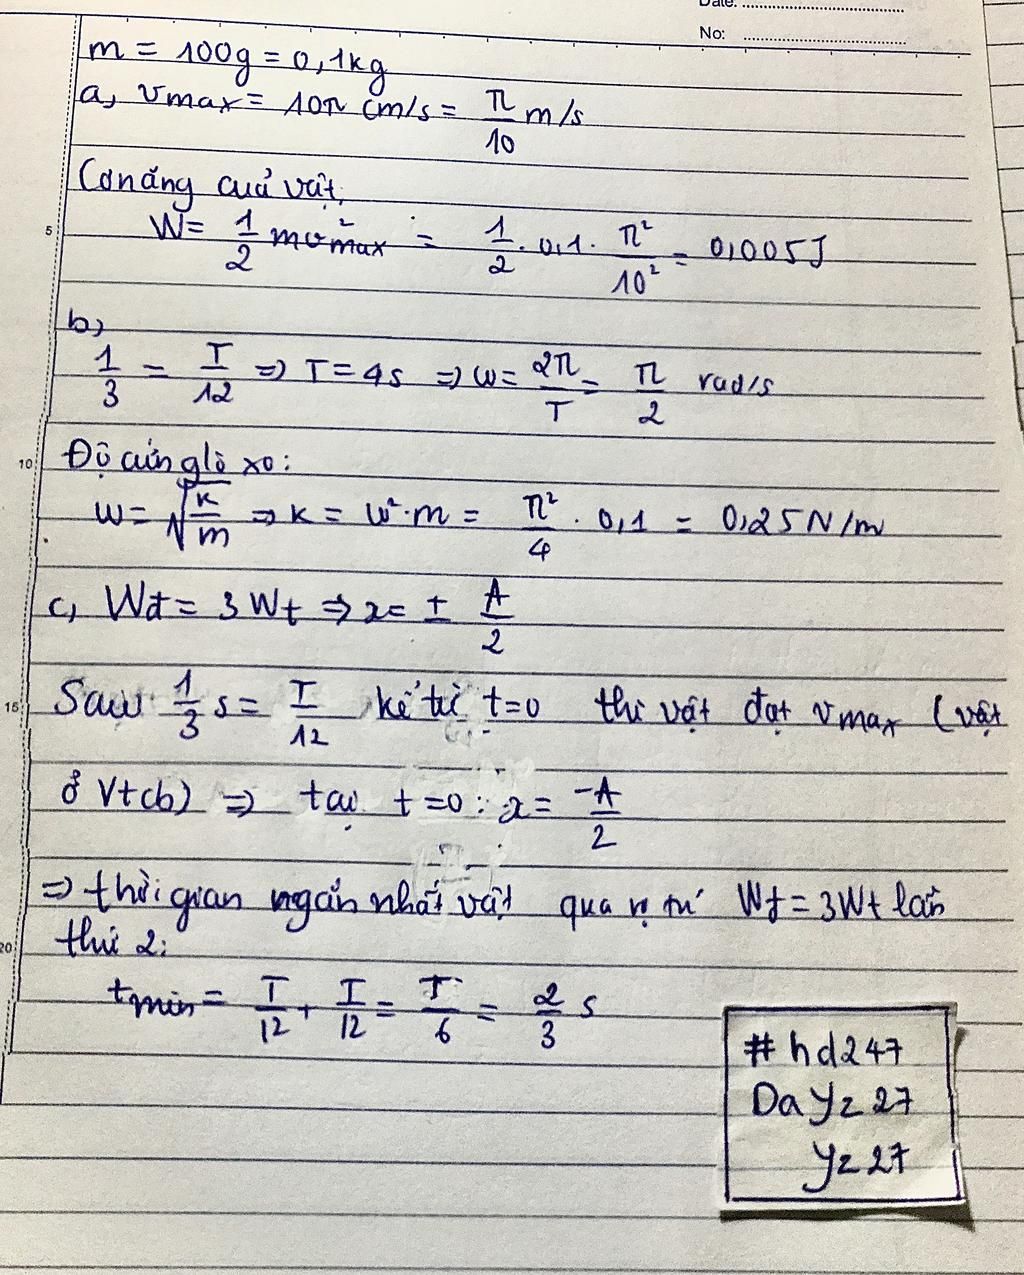 Date: ..........................
No: ..........................
m = 100g = 0,1kg
a, vmax = 10π cm/s = π/10 m/s
Cơ năng của vật:
W = 1/2 mv²max = 1/2 . 0,1 . π²/10² = 0,005J
5
b,
1/3 = T/12 => T = 4s => ω = 2π/T = π/2 rad/s
10 Độ cứng lò xo:
ω = √(k/m) => k = ω².m = π²/4 . 0,1 = 0,25 N/m
c, Wđ = 3Wt => x = ± A/2
15 Sau 1/3 s = T/12 kể từ t=0 thì vật đạt vmax (vật
ở Vtcb) => tại t=0: x = -A/2
=> thời gian ngắn nhất vật qua vị trí Wđ = 3Wt lần
20 thứ 2:
tmin = T/12 + T/12 = T/6 = 2/3 s
#hd247
DaYz27
Yz27